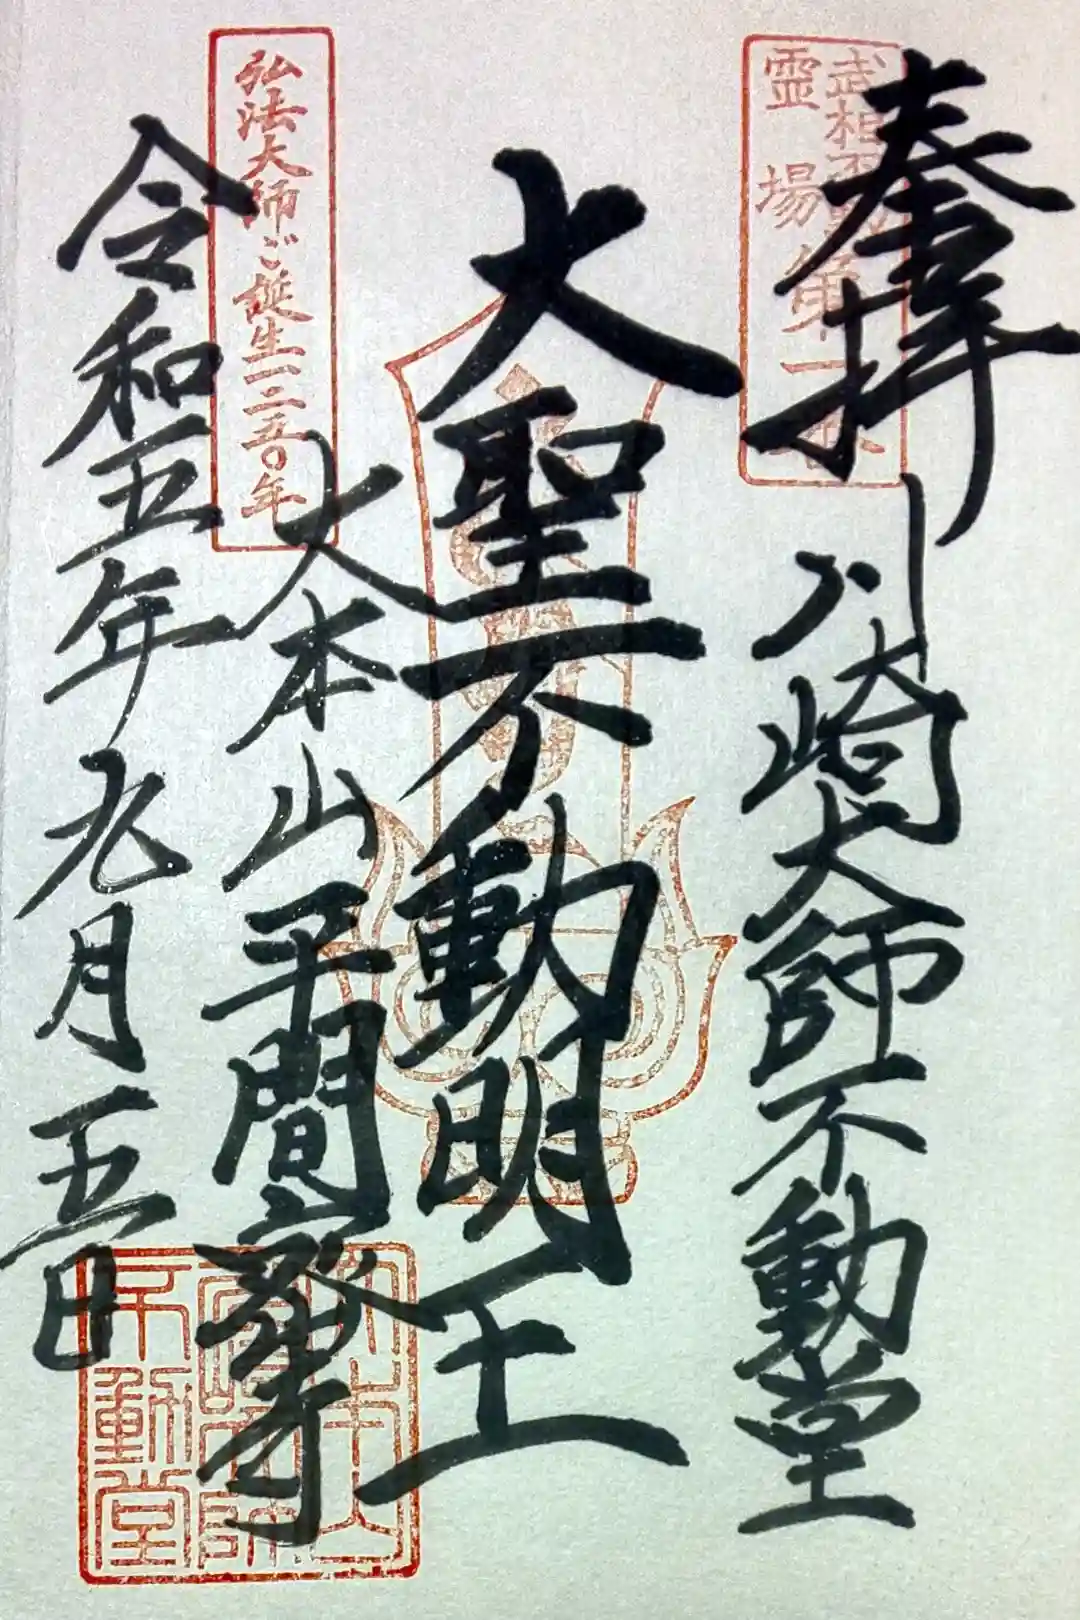 奉拝
川崎大師不動堂
大聖不動明王
大本山平間寺
令和五年九月五日
武相不動
霊場第一番
弘法大師ご誕生一二五〇年
大本山
川崎大師
不動堂